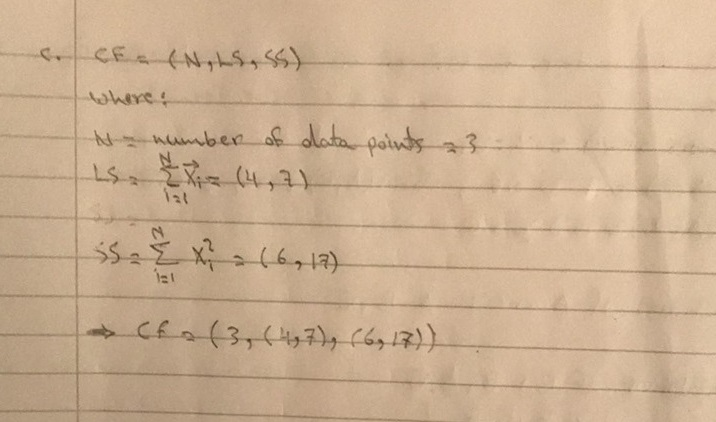 c. CF = (N, LS, SS)
where:
N = number of data points = 3
LS = N∑i=1 X⃗i = (4, 7)
SS = N∑i=1 Xi² = (6, 17)
→ CF = (3, (4,7), (6,17))